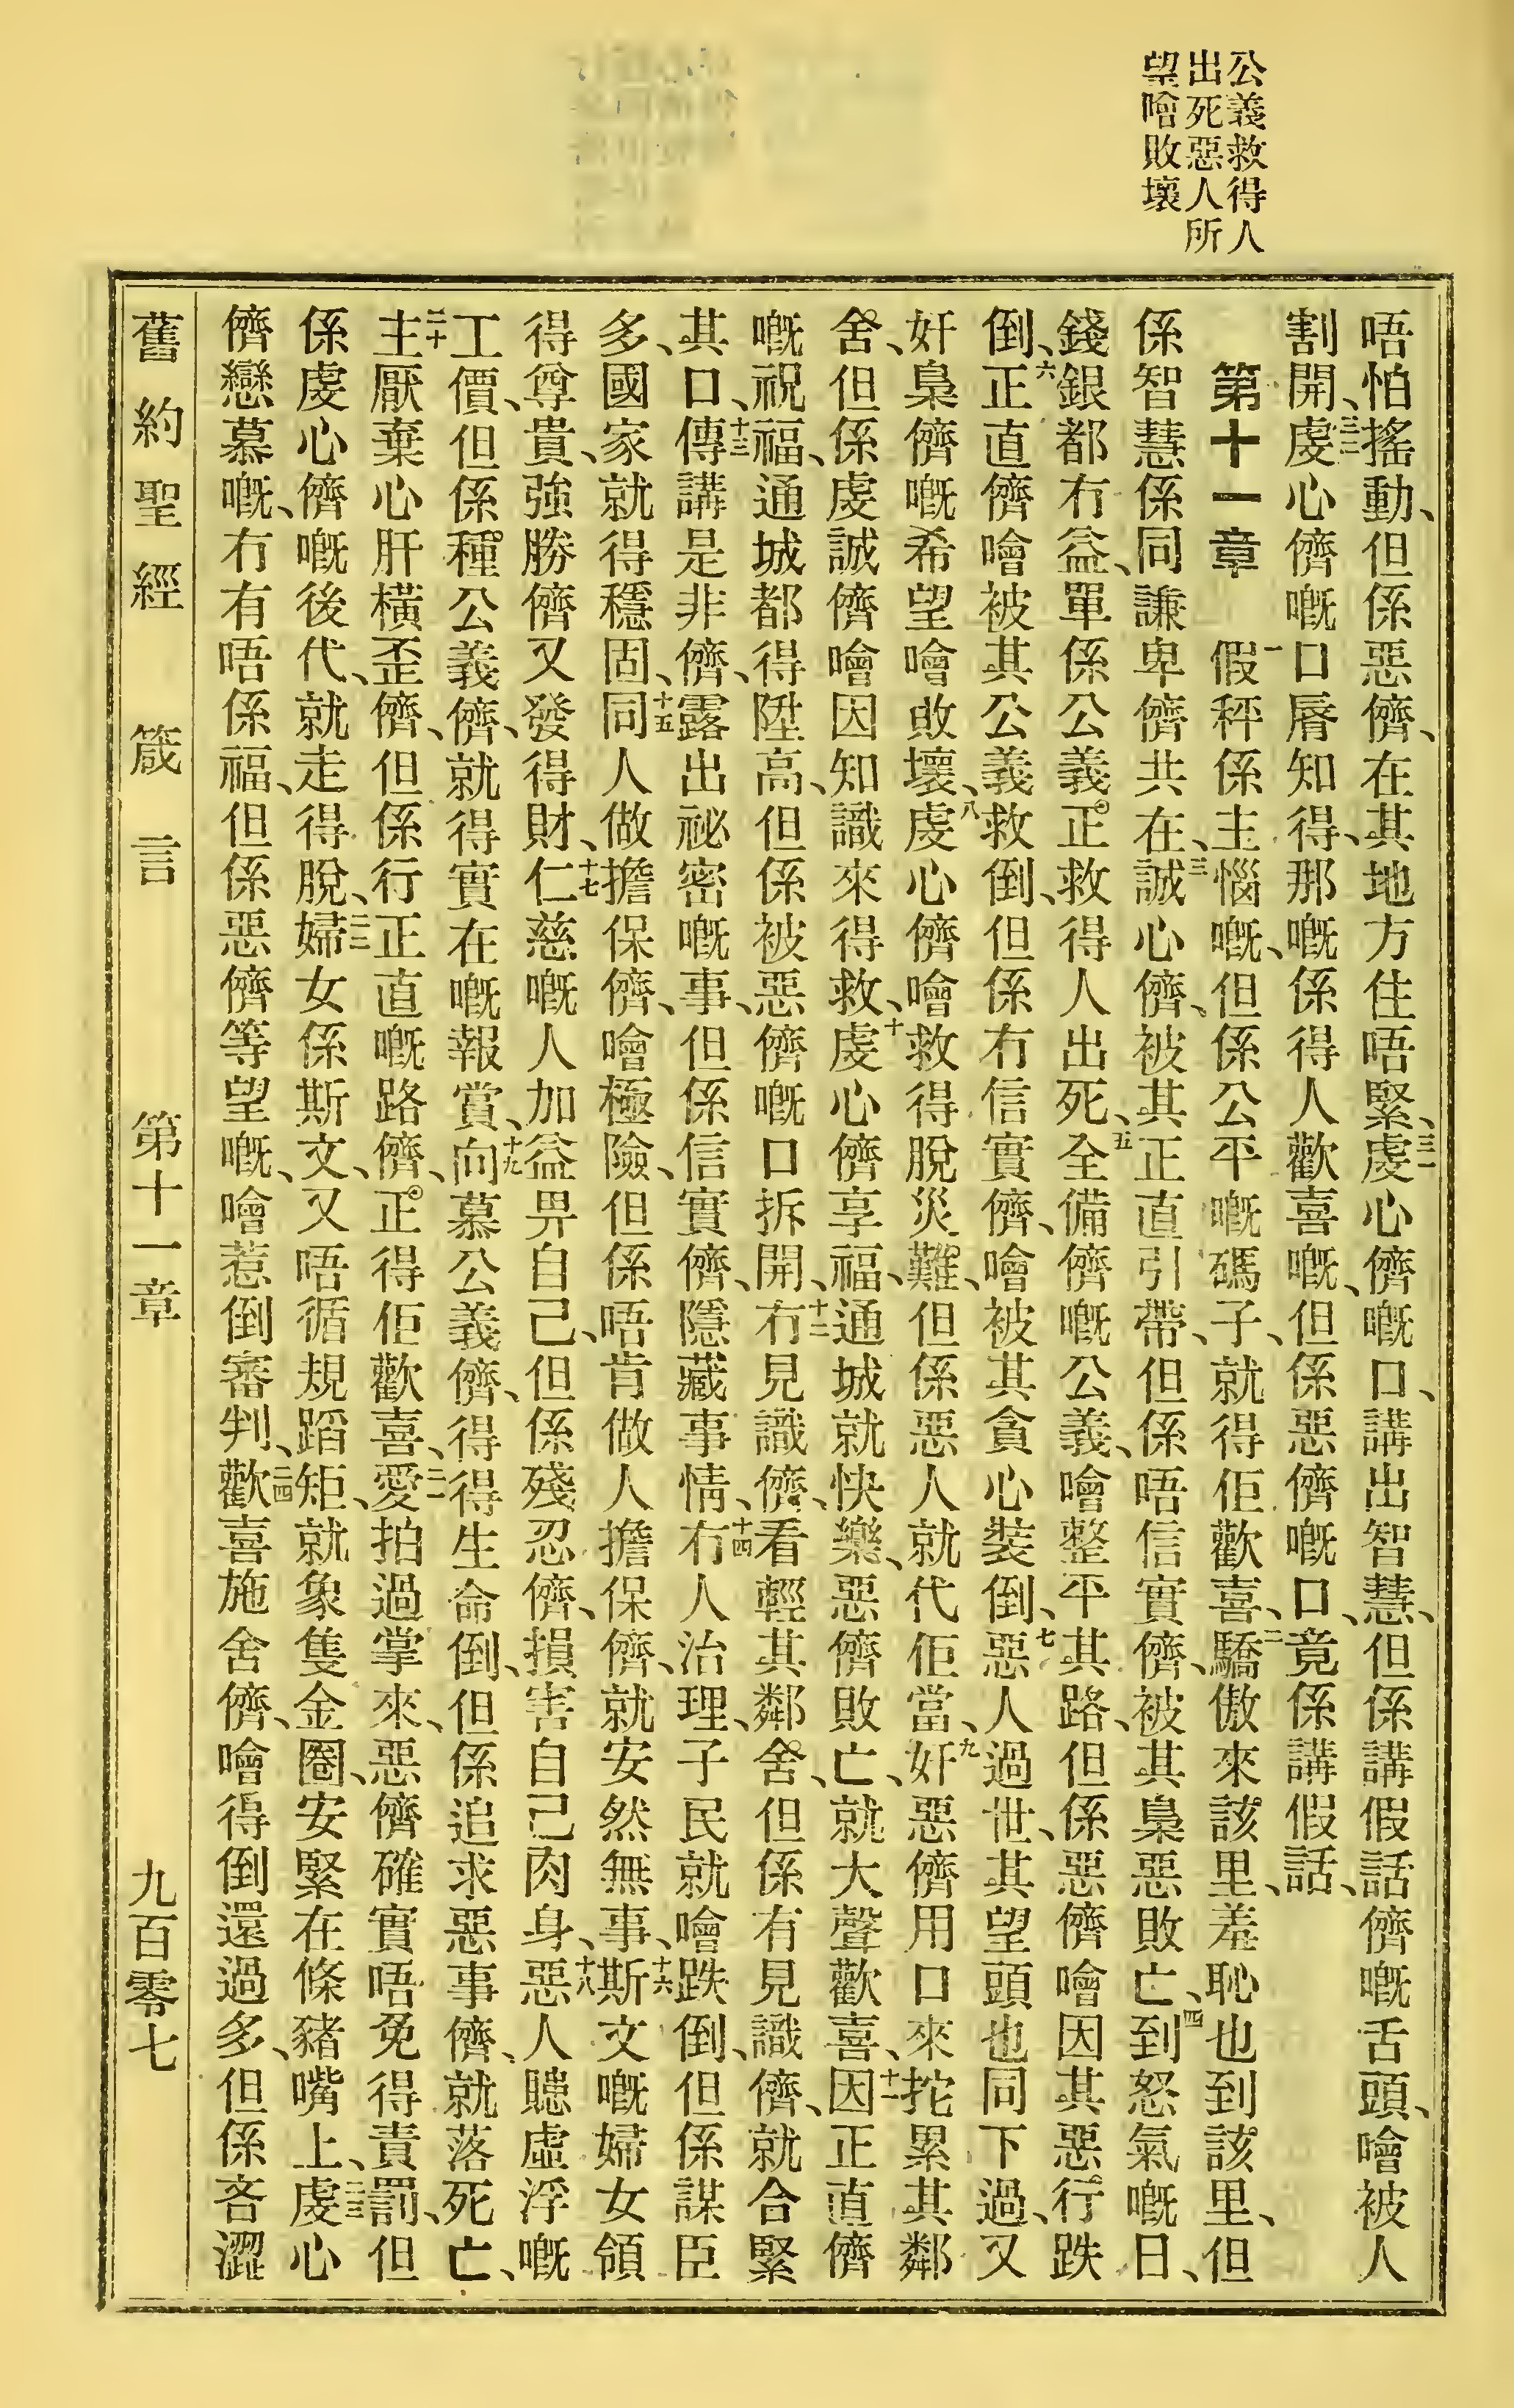 公義救得人
出死惡人所
望噲敗壞
唔怕搖動、但係惡儕、在其地方住唔緊、三一虔心儕嘅口、講出智慧、但係講假話儕嘅舌頭、噲被人
割開、三二虔心儕嘅口唇知得、那嘅係得人歡喜嘅、但係惡儕嘅口、竟係講假話、
第十一章 一假秤係主惱嘅、但係公平嘅碼子、就得佢歡喜、二驕傲來該里、羞恥也到該里、但
係智慧係同謙卑儕共在、三誠心儕、被其正直引帶、但係唔信實儕、被其梟惡敗亡、四到怒氣嘅日、
錢銀都冇益、單係公義正救得人出死、五全備儕嘅公義、噲整平其路、但係惡儕噲因其惡行跌
倒、六正直儕噲被其公義救倒、但係冇信實儕、噲被其貪心裝倒、七惡人過世、其望頭也同下過、又
奸梟儕嘅希望噲敗壞、八虔心儕噲救得脫災難、但係惡人就代佢當、九奸惡儕用口來拕累其鄰
舍、但係虔誠儕噲因知識來得救、十虔心儕享福、通城就快樂、惡儕敗亡、就大聲歡喜、十一因正直儕
嘅祝福、通城都得陞高、但係被惡儕嘅口拆開、十二冇見識儕、看輕其鄰舍、但係有見識儕、就合緊
其口、十三傳講是非儕、露出祕密嘅事、但係信實儕、隱藏事情、十四冇人治理、子民就噲跌倒、但係謀臣
多、國家就得穩固、十五同人做擔保儕、噲極險、但係唔肯做人擔保儕、就安然無事、十六斯文嘅婦女領
得尊貴、強勝儕又發得財、十七仁慈嘅人加益畀自己、但係殘忍儕、損害自己肉身、十八惡人賺虛浮嘅
工價、但係種公義儕、就得實在嘅報賞、十九向慕公義儕、得得生命倒、但係追求惡事儕、就落死亡、
二十主厭棄心肝橫歪儕、但係行正直嘅路儕、正得佢歡喜、二一愛拍過掌來、惡儕確實唔免得責罰、但
係虔心儕嘅後代、就走得脫、二二婦女係斯文、又唔循規蹈矩、就象隻金圈、安緊在條豬嘴上、二三虔心
儕戀慕嘅、冇有唔係福、但係惡儕等望嘅、噲惹倒審判、二四歡喜施舍儕、噲得倒還過多、但係吝澀
舊約聖經 箴言 第十一章 九百零七